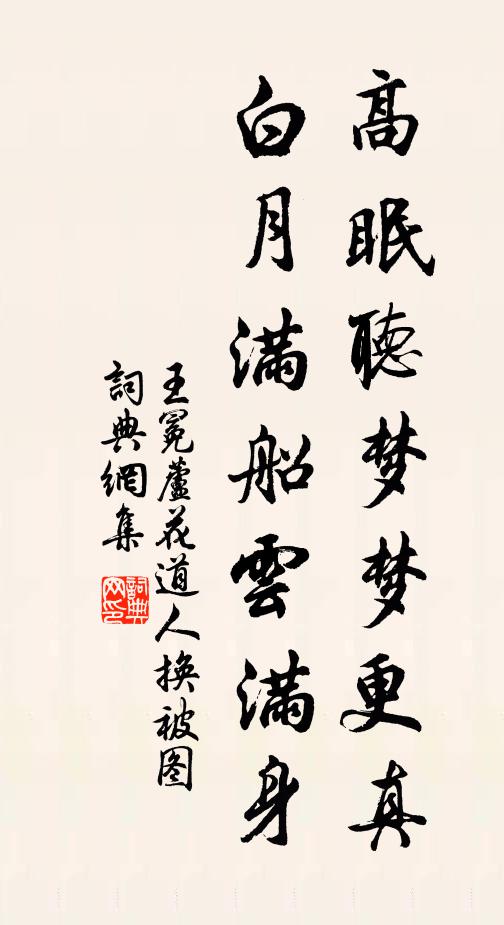 高眠聽梦梦更真
白月满船雲满身
王冕蘆花道人换被图
詞典網集
詞典網印